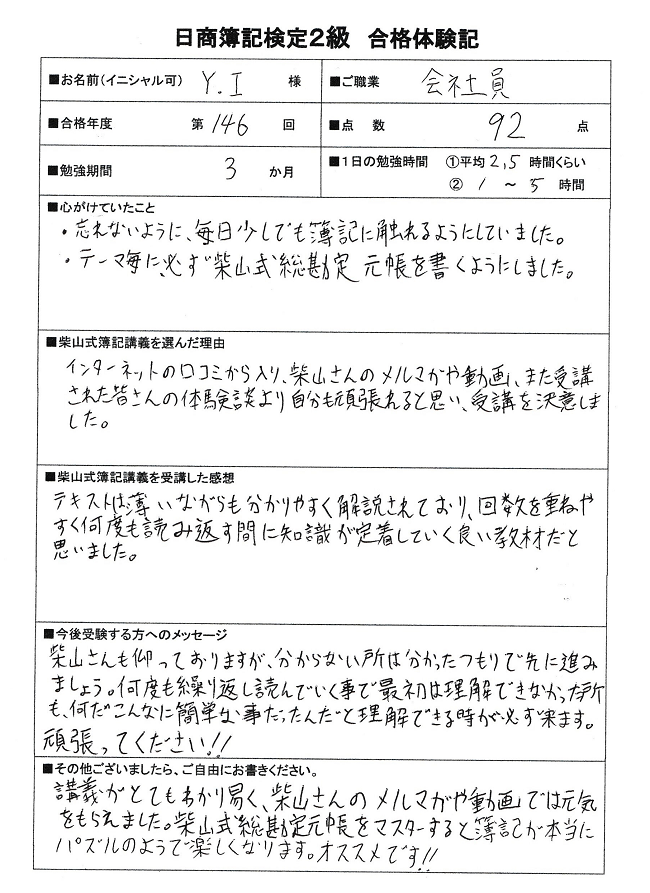 日商簿記検定2級 合格体験記
■お名前(イニシャル可) Y.I 様 ■ご職業 会社員
■合格年度 第 146 回 ■点 数 92 点
■勉強期間 3 か月 ■1日の勉強時間 ①平均 2,5 時間くらい
② 1 ～ 5 時間
■心がけていたこと
・忘れないように、毎日少しでも簿記に触れるようにしていました。
・テーマ毎に必ず柴山式総勘定元帳を書くようにしました。
■柴山式簿記講義を選んだ理由
インターネットの口コミから入り、柴山さんのメルマガや動画、また受講
された皆さんの体験談より自分も頑張れると思い、受講を決意しま
した。
■柴山式簿記講義を受講した感想
テキストは薄いながらも分かりやすく解説されており、回数を重ねや
すく何度も読み返す間に知識が定着していく良い教材だと
思いました。
■今後受験する方へのメッセージ
柴山さんも仰っておりますが、分からない所は分かったつもりで先に進み
ましょう。何度も繰り返し読んでいく事で最初は理解できなかった所
も、何だこんなに簡単な事だったんだと理解できる時が必ず来ます。
頑張ってください!!
■その他ございましたら、ご自由にお書きください。
講義がとてもわかり易く、柴山さんのメルマガや動画では元気
をもらえました。柴山式総勘定元帳をマスターすると簿記が本当に
パズルのようで楽しくなります。オススメです!!